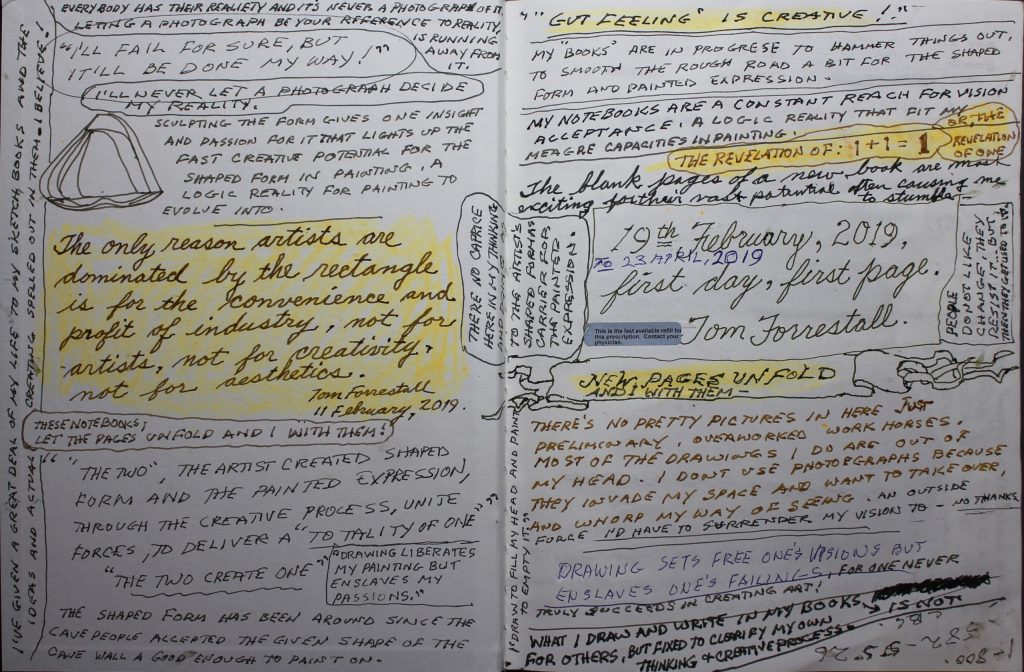 EVERYBODY HAS THEIR REALIETY AND IT'S NEVER A PHOTOGRAPH OF IT.
LETING A PHOTOGRAPH BE YOUR REFERENCE TO REALITY,
IS RUNNING
AWAY FROM
IT.
"I'LL FAIL FOR SURE, BUT
IT'LL BE DONE MY WAY!"
I'LL NEVER LET A PHOTOGRAPH DECIDE
MY REALITY.
SCULPTING THE FORM GIVES ONE INSIGHT
AND PASSION FOR IT THAT LIGHTS UP THE
FAST CREATIVE POTENTIAL FOR THE
SHAPED FORM IN PAINTING, A
LOGIC REALITY FOR PAINTING TO
EVOLVE INTO.
The only reason artists are
dominated by the rectangle
is for the convenience and
profit of industry, not for
artists, not for creativity,
not for aesthetics.
Tom Forrestall
11 February, 2019.
THESE NOTEBOOKS;
LET THE PAGES UNFOLD AND I WITH THEM!
"THE TWO", THE ARTIST CREATED SHAPED
FORM AND THE PAINTED EXPRESSION,
THROUGH THE CREATIVE PROCESS, UNITE
FORCES, TO DELIVER A "TO TALITY OF ONE"
"THE TWO CREATE ONE"
"DRAWING LIBERATES
MY PAINTING BUT
ENSLAVES MY
PASSIONS."
THE SHAPED FORM HAS BEEN AROUND SINCE THE
CAVE PEOPLE ACCEPTED THE GIVEN SHAPE OF THE
CAVE WALL A GOOD ENOUGH TO PAINT ON.
I'VE GIVEN A GREAT DEAL OF MY LIFE TO MY SKETCH BOOKS AND THE
IDEAS AND ACTUAL SPELLED OUT IN THEM I BELIEVE.
THERE NO CAPRICE
HERE IN MY THINKING
"GUT FEELING" IS CREATIVE!"
MY "BOOKS" ARE IN PROGRESE TO HAMMER THINGS OUT,
TO SMOOTH THE ROUGH ROAD A BIT FOR THE SHAPED
FORM AND PAINTED EXPRESSION.
MY NOTEBOOKS ARE A CONSTANT REACH FOR VISION
ACCEPTANCE. A LOGIC REALITY THAT FIT MY
MEAGRE CAPACITIES IN PAINTING.
THE REVELATION OF: 1+1=1
OR, THE
REVELATION
OF ONE
The blank pages of a new book are most
exciting for their vast potential often causing me
to stumble-
TO THE ARTIST'S
SHAPED FORM AS
CARRIER FOR
THA PAINTED
EXPRESSION.
19th February, 2019,
TO 23 APRIL, 2019
first day, first page.
Tom Forrestall.
This is the last available refill for
this prescription. Contact your
physician.
PEOPLE
DO NOT LIKE
CHANGE, THEY
RESIST IT... BUT,
THEN THEY GET USED TO IT.
NEW PAGES UNFOLD
AND I WITH THEM-
THERE'S NO PRETTY PICTURES IN HERE JUST
PRELIMONARY, OVERWORKED WORK HORSES.
MOST OF THE DRAWINGS I DO ARE OUT OF
MY HEAD. I DONT USE PHOTOERGRAPHS BECAUSE
THEY INVADE MY SPACE AND WANT TO TAKE OVER,
AND WHORP MY WAY OF SEEING. AN OUTSIDE
FORCE I'D HAVE TO SURRENDER MY VISION TO - NO THANKS
DRAWING SETS FREE ONE'S VISIONS BUT
ENSLAVES ONE'S FAILINGS, FOR ONE NEVER
TRULY SUCCEEDS IN CREATING ART!
WHAT I DRAW AND WRITE IN MY BOOKS IS NOT
FOR OTHERS, BUT FIXED TO CLARIFY MY OWN
THINKING & CREATIVE PROCESS."
I DRAW TO FILL MY HEAD AND PAINT
TO EMPTY IT."